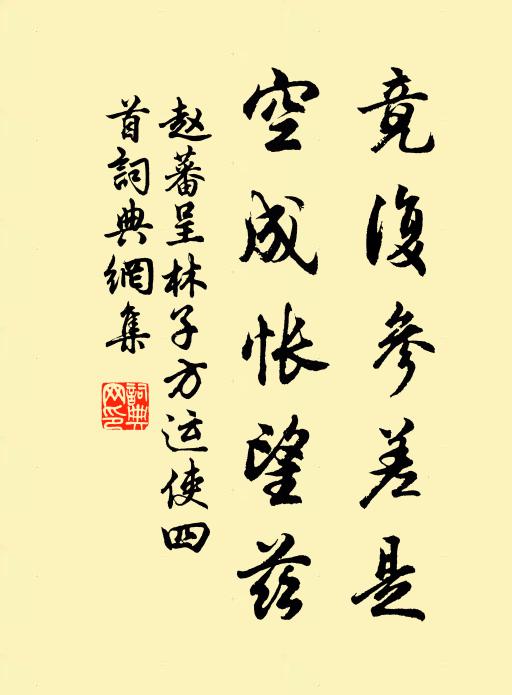 竟復參差是
空成悵望茲
赵蕃呈林子方运使四
首詞典網集
詞典
网印